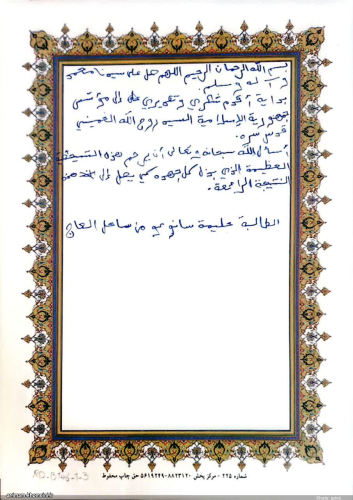 بسم الله الرحمان الرحيم اللهم صل على سيدنا محمد
و آله و سلم.
بداية أقدم شكري و تقديري على إلى مؤسس
جمهورية الإسلامية السيد روح الله الخميني
قدس سره.
أسأل الله سبحانه و تعالى أن يرحم هذه الشخصية
العظيمة الذي بذل كل جهوده كي يصل إلى هذه
النتيجة الرائعة.
الطالبة حليمة سانوغو من ساحل العاج
شماره ۲۲۵ - مرکز پخش ۸۸۲۳۱۲۰-۵۶۱۹۲۲۹ حق چاپ محفوظ